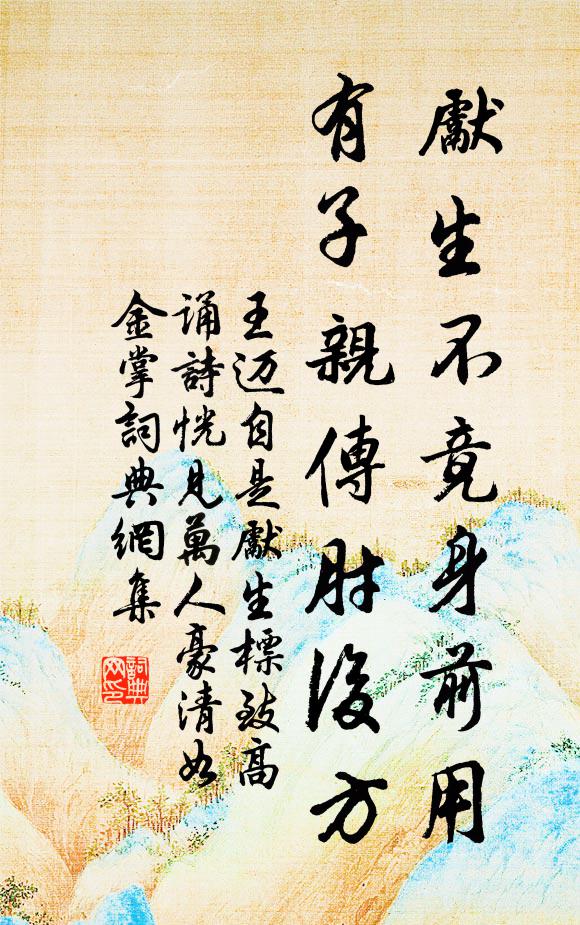 獻生不竟身前用
有子親傳肘後方
王迈自是獻生標致高
誦詩恍見萬人豪清如
金掌詞典網集
詞典網印